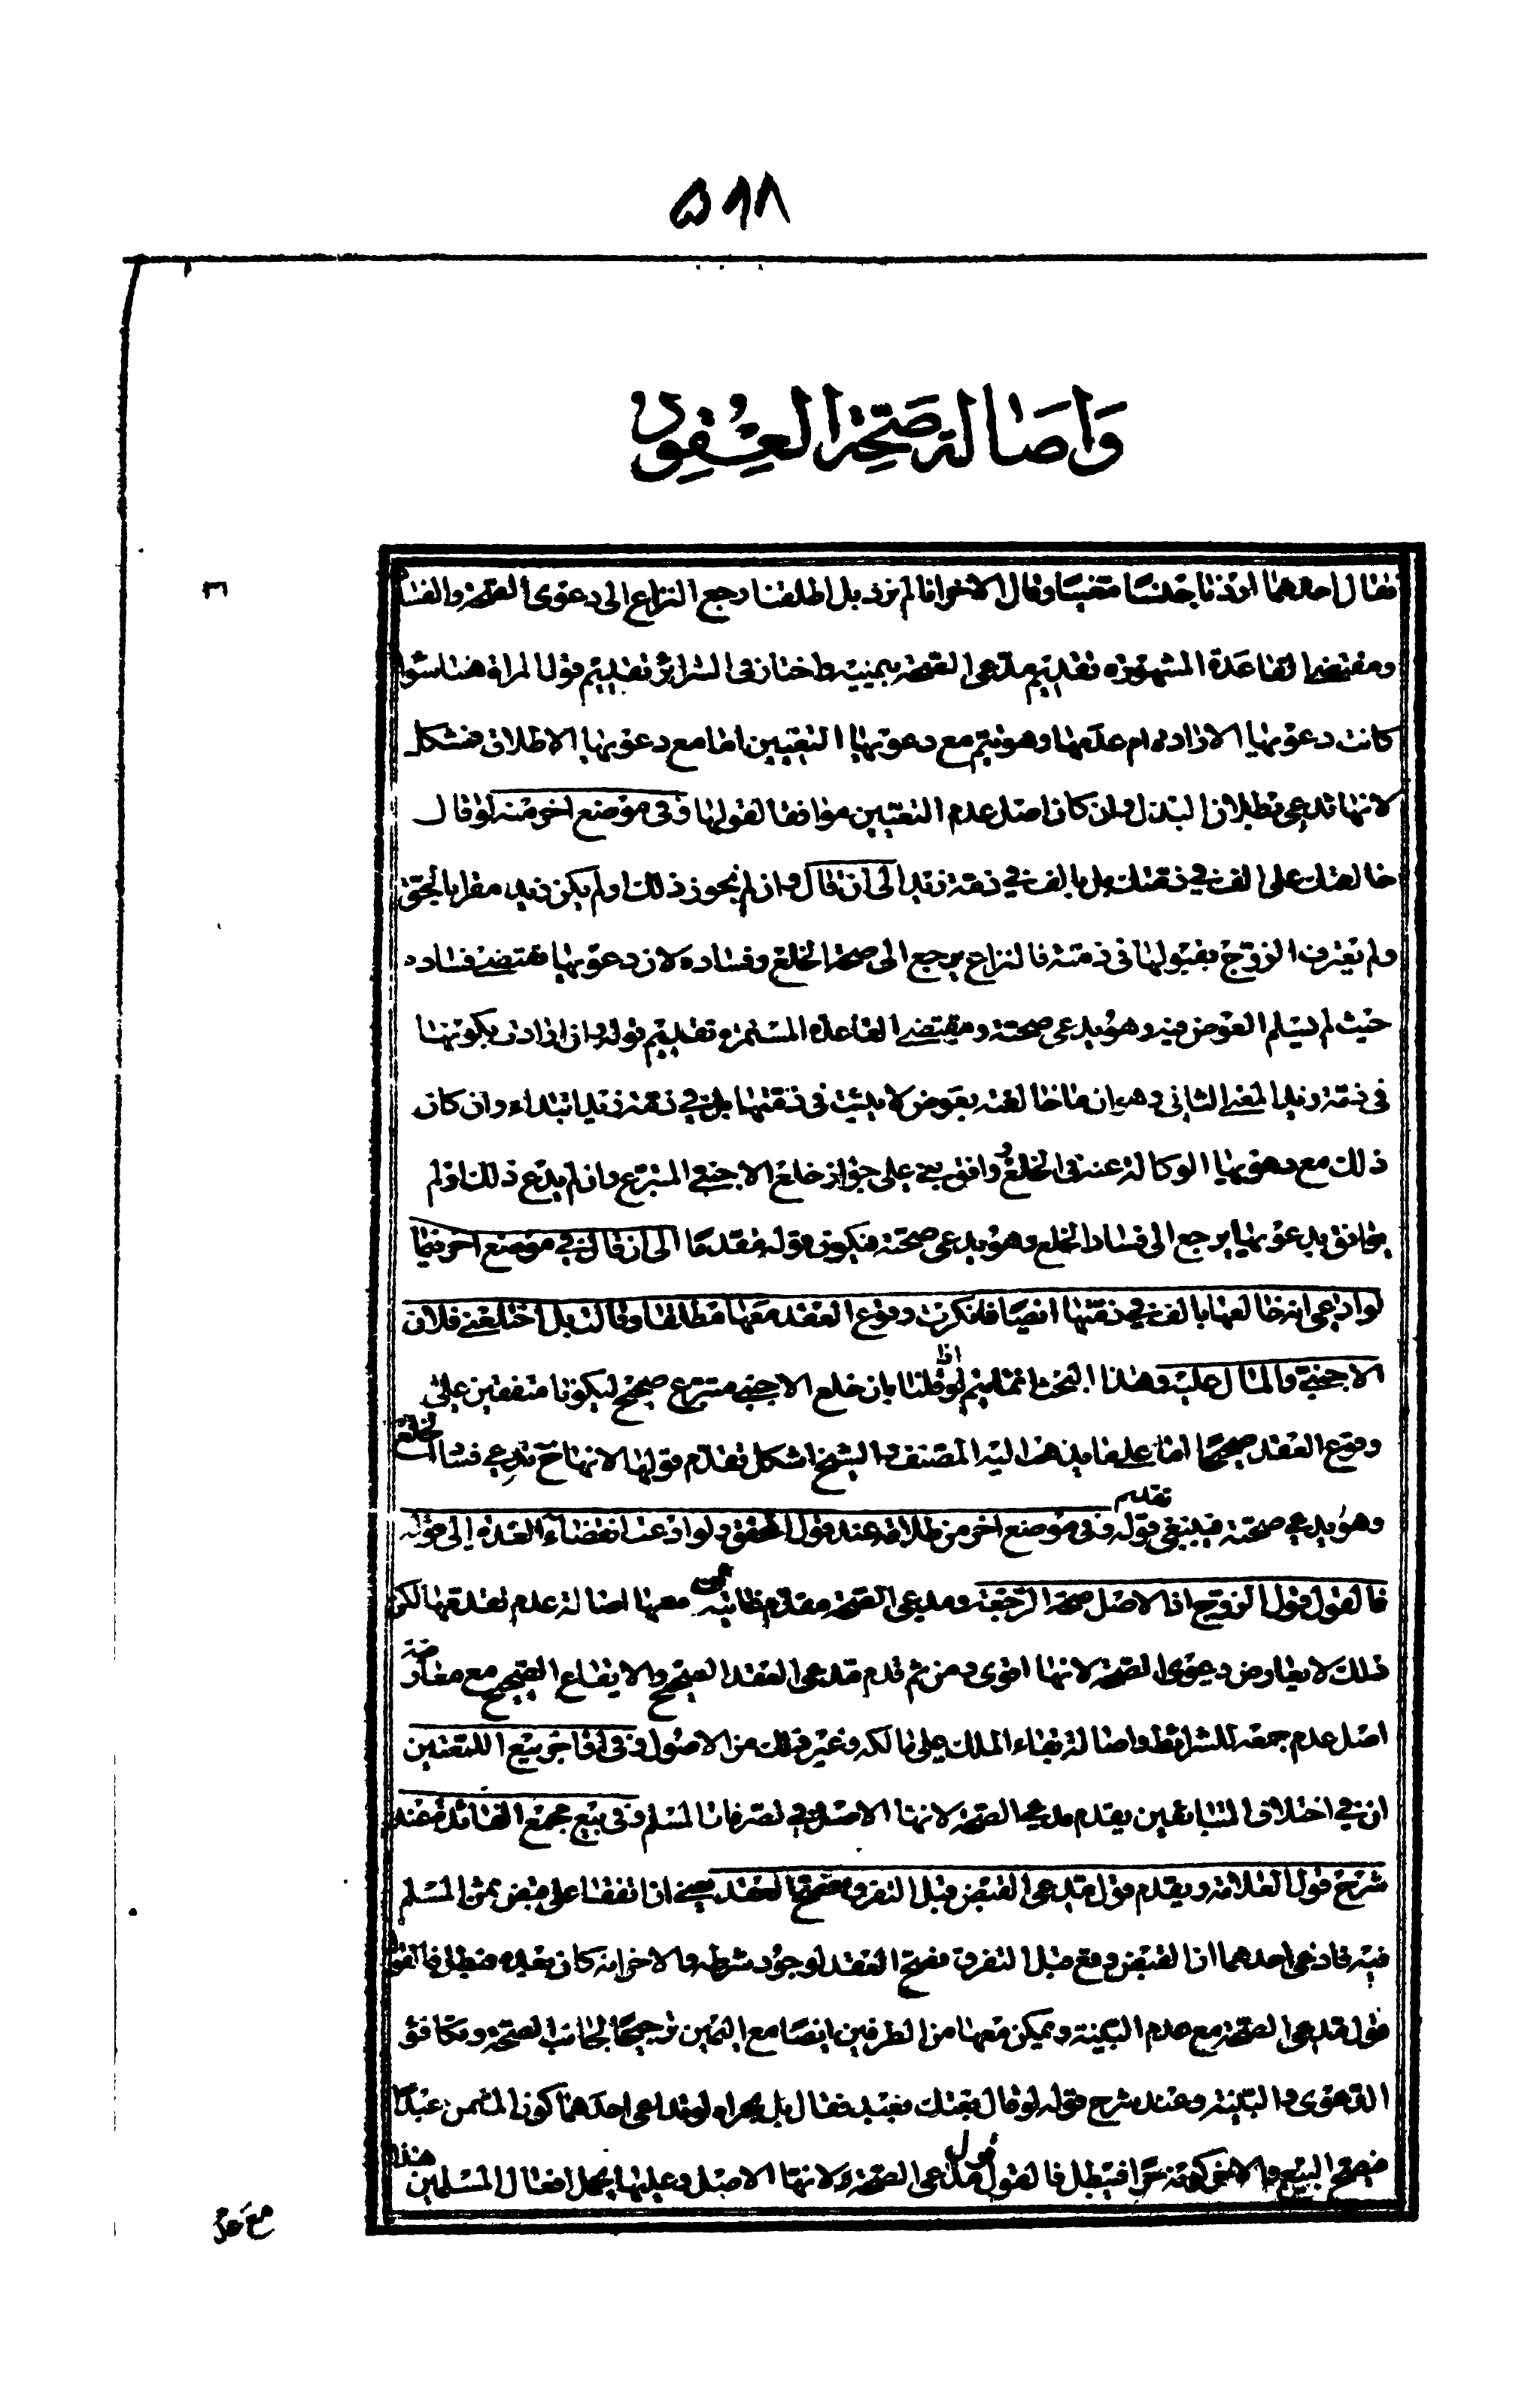 ٥٩٨
واصالة صحة العقود
فقال احدهما اردنا جنسا معينا وقال الاخر انا لم نرد بل اطلقنا رجع النزاع الى دعوى الصحة والفساد
ومقتضى القاعدة المشهورة تقديم مدعى الصحة بيمينه واختار فى الشرائع تقديم قول المراة هنا سواء
كانت دعويها الارادة ام عدمها وهو يتم مع دعويها التعيين اما مع دعويها الاطلاق فمشكل
لانها تدعى بطلان البذل وان كان اصل عدم التعيين موافقا لقولها وفى موضع اخر منه لو قال
خالعتك على الف فى ذمتك بل بالف فى ذمة زيد الى ان قال وان لم نجوز ذلك او لم يكن زيد مقرا بالحق
ولم يعترف الزوج بقبولها فى ذمته فالنزاع يرجع الى صحة الخلع وفساده لان دعويها تقتضى فساده
حيث لم يسلم العوض فيه وهو يدعى صحته ومقتضى القاعدة المستمرة تقديم قوله وان ارادت بكونها
فى ذمة زيد المعنى الثانى وهو ان ما خالعته بعوض لا يثبت فى ذمتها بل فى ذمة زيد ابتداء وان كان
ذلك مع دعويها الوكالة عنه فى الخلع ووافق بنى على جواز خلع الاجنبى المتبرع وان لم يدع ذلك او لم
يوافق بدعويها يرجع الى فساد الخلع وهو يدعى صحته فيكون قوله مقدما الى ان قال فى موضع اخر فيما
لو ادعى انه خالعها بالف فى ذمتها ايضا فانكرت وقوع العقد معها مطلقا وقالت بل اختلعنى فلان
الاجنبى والمال عليه وهذا البحث انما يتم لو اذا قلنا بان خلع الاجنبى متبرع صحيح ليكونا متفقين على
وقوع العقد صحيحا اما على ما يذهب اليه المصنف والشيخ اشكل تقدم قولها لانها ح تدعى فساد الخلع
وهو يدعى صحته فينبغى تقديم قوله وفى موضع اخر من طلاقه عند قول المحقق ولو ادعت انقضاء العدة الى قوله
فالقول قول الزوج اذ الاصل صحة الرجعة ومدعى الصحة مقدم معها اصالة عدم تقدمها لكن
ذلك لا يعارض دعوى الصحة لانها اقوى ومن ثم قدم مدعى العقد الصحيح والايقاع الصحيح مع معارضة
اصل عدم جمعه للشرائط واصالة بقاء الملك على مالكه وغير ذلك من الاصول وفى اواخر بيع اللمعتين
ان فى اختلاف المتبايعين يقدم مدعى الصحة لانها الاصل فى تصرفات المسلم وفى بيع مجمع الفائدة عند
شرح قول العلامة ويقدم قول مدعى القبض قبل التفرق فيصح العقد يعنى اذا اتفقا على قبض ثمن المسلم
فيه فادعى احدهما ان القبض وقع قبل التفرق فصح العقد لوجود شرطه والاخر انه كان بعده فبطل فالقول
قول مدعى الصحة مع عدم البينة ويمكن معها من الطرفين ايضا مع اليمين ترجيحا لجانب الصحة وتكافؤ
الدعوى والبينة وعند شرح قوله لو قال بعتك بعبد فقال بل بحر او لو ادعى احدهما كون الثمن عبدا
فيصح البيع والاخر كونه حرا فيبطل فالقول قول مدعى الصحة لانها الاصل وعليها يحمل افعال المسلمين هذا